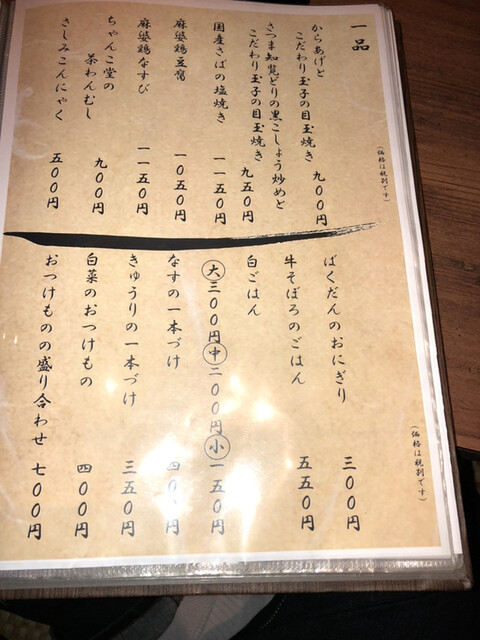 一品
(価格は税別です)
からあげと
こだわり玉子の目玉焼き 九〇〇円
さつま知覧どりの黒こしょう炒めと
こだわり玉子の目玉焼き 九五〇円
国産さばの塩焼き 一一五〇円
麻婆鶏豆腐 一〇五〇円
麻婆鶏なすび 一一五〇円
ちゃんこ堂の
茶わんむし 九〇〇円
さしみこんにゃく 五〇〇円
(価格は税別です)
ばくだんのおにぎり 三〇〇円
牛そぼろのごはん 五五〇円
白ごはん
大三〇〇円中二〇〇円小一五〇円
なすの一本づけ 四〇〇円
きゅうりの一本づけ 三五〇円
白菜のおつけもの 四〇〇円
おつけものの盛り合わせ 七〇〇円